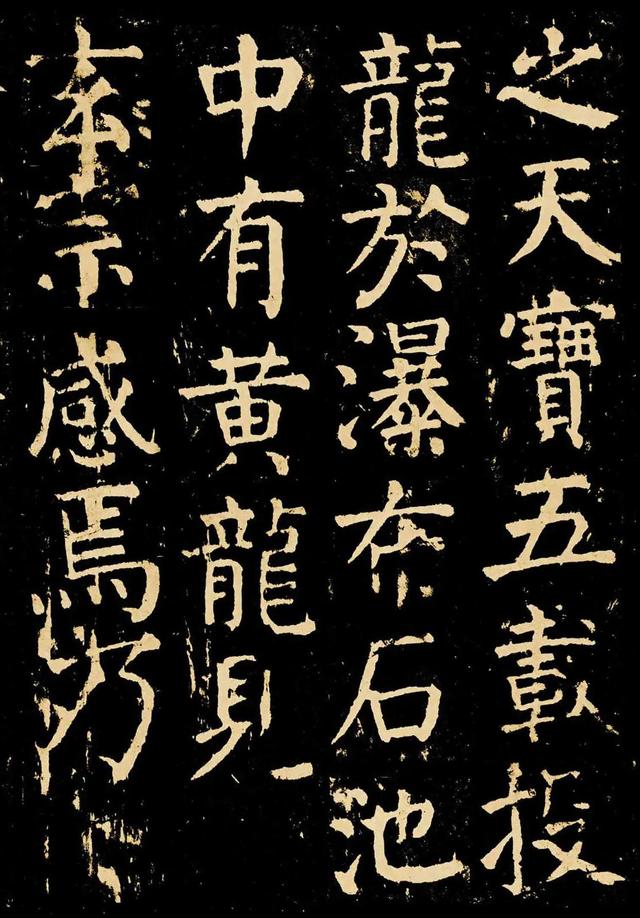 之天寶五載投
龍於瀑布石池
中有黃龍見
感焉乃